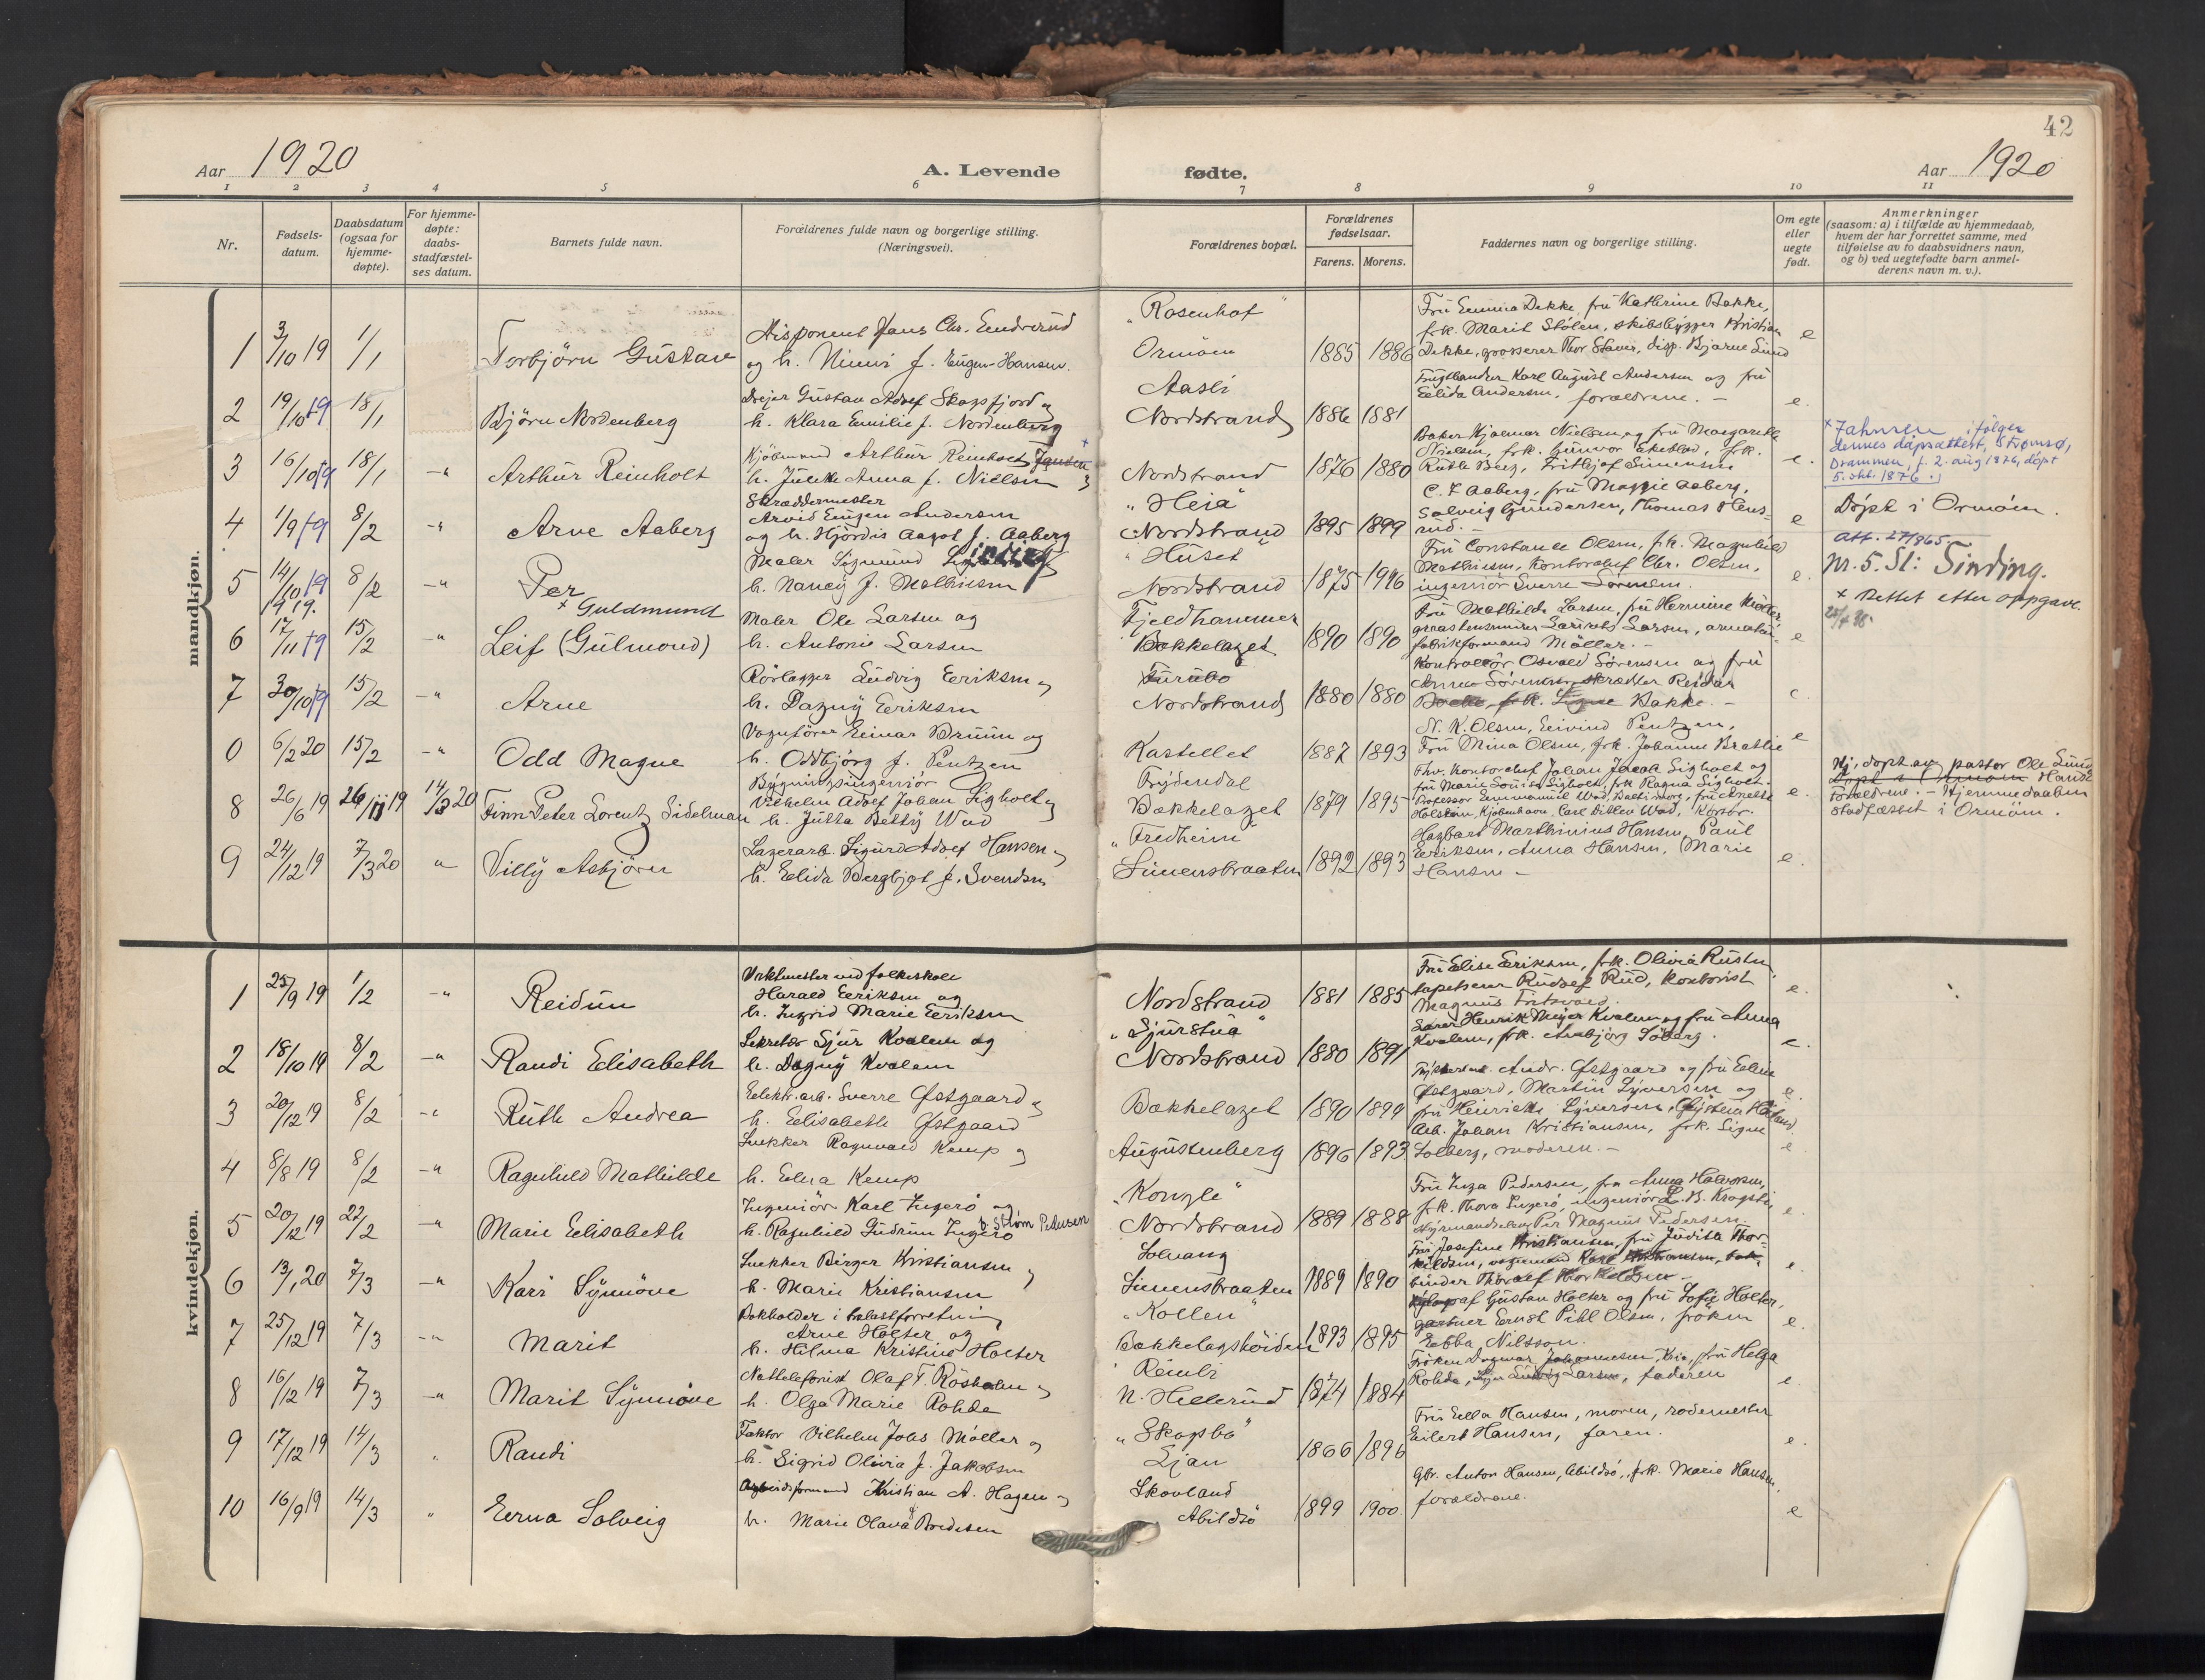 42
Aar 1920
A. Levende fødte.
Aar 1920
1 2 3 4 5 6 7 8 9 10 11
Nr.
Fødsels-
datum.
Daabsdatum
(ogsaa for
hjemme-
døpte).
For hjemme-
døpte:
daabs-
stadfæstel-
ses datum.
Barnets fulde navn.
Forældrenes fulde navn og borgerlige stilling.
(Næringsvei).
Forældrenes bopæl.
Forældrenes
fødselsaar.
Farens. Morens.
Faddernes navn og borgerlige stilling.
Om egte
eller
uegte
født.
Anmerkninger
(saasom: a) i tilfælde av hjemmedaab,
hvem der har forrettet samme, med
tilføielse av to daabsvidners navn,
og b) ved uegtefødte barn anmel-
derens navn m. v.).
mandkjøn.
1 3/10 19 1/1 Torbjörn Gustav
Disponent Hans Chr. Endrerud
og h. Nimi f. Eugen-Hansen.
"Rosenhof"
Ormöen 1885 1886
Fru Emma Dekke, fru Kathrine Bakke,
frk. Marit Stölen, skibsbygger Kristian
Dekke, grosserer Thor Staver, disp. Bjarne Lund
e
2 19/10 19 18/1 Björn Nordenberg
Drejer Gustav Adolf Skogsfjord og
h. Klara Emilie f. Nordenberg
Aasli
Nordstrand 1886 1881
Frugthandler Karl August Andersen og fru
Elida Andersen, forældrene. -
e.
3 16/10 19 18/1 -"- Arthur Reinholt
Kjöbmand Arthur Reinholt Jansen
h. Julette Anna f. Nielsen
Nordstrand 1876 1880
Baker Hjalmar Nielsen og fru Margarethe
Nielsen, frk. Gunvor Ekeblad, frk.
Ruth Berg, Frithjof Simensen
e.
x Jahnsen ifølge
dennes dåpsattest, Strømsø,
Drammen, f. 2. aug 1876, døpt
5. okt. 1876.
4 1/9 19 8/2 -"- Arne Aaberg
Skræddermester
Arvid Eugen Andersen
og h. Hjördis Aagot f. Aaberg
"Heia"
Nordstrand 1895 1899
C. F. Aaberg, fru Maggie Aaberg,
Solveig Gundersen, Thomas Hens-
rud. -
e
Döpt i Ormöen.
5 14/10 19 8/2 -"- Per
Maler Sigmund Sinding
h. Nancy f. Mathiesen
"Huset"
Nordstrand 1875 1916
Fru Constance Olsen, frk. Magnhild
Mathiesen, kontorchef Chr. Olsen,
ingeniör Sverre Sörensen.
e.
att. 27/865.
Nr. 5. St: Sinding.
6 1919. 17/11 19 15/2 -"- x Guldmund
Leif (Gulmond)
Maler Ole Larsen og
h. Antonie Larsen
Fjeldhammer
Bækkelaget 1890 1890
Fru Mathilde Larsen, fru Hermine Möller,
graastensminer Laurits Larsen, armatur-
fabrikformand Möller. -
e
x Rettet etter oppgave.
25/4 38.
7 30/10 19 15/2 -"- Arne
Rörlægger Ludvig Eeriksen og
h. Dagny Eeriksen
Furubo
Nordstrand 1880 1880
Kontrollör Osvald Sörensen og fru
Anna Sörensen, skrædder Reidar
Bakke, frk. Signe Bakke. -
e.
0 6/2 20 15/2 -"- Odd Magne
Vognförer Einar Bruun og
h. Oddbjörg f. Pentzen
Kastellet 1887 1893
N. K. Olsen, Eivind Pentzen,
Fru Mina Olsen, frk. Johanne Bratlie
e
8 26/6 19 26/11 19 14/3 20 Finn Peter Lorentz Sidelman
Bygningsingeniör
Vilhelm Adolf Johan Sigholt og
h. Jutta Betty Wad
Frydendal
Bækkelaget 1879 1895
Fhv. kontorchef Johan Jacob Sigholt og
fru Marie Louise Sigholt, frk. Ragna Sigholt.
Professor Emmanuel Wad, Baltimore, fru Anette
Holstein, Kjöbenhavn, Carl Ditlev Wad, Korsör.
e.
Hj. döpt av pastor Ole Lund
Döpt i Ormöen
Forældrene. - Hjemmedaaben
stadfæstet i Ormöen.
9 24/12 19 7/3 20 " Villy Asbjörn
Lagerarb. Sigurd Adolf Hansen og
h. Elida Bergljot f. Svendsen
"Fredheim"
Simensbraaten 1892 1893
Hagbart Marthinius Hansen, Paul
Eeriksen, Anna Hansen, Marie
Hansen -
e.
kvindekjøn.
1 25/9 19 1/2 -"- Reidun
Vaktmester ved folkeskole
Harald Eeriksen og
h. Ingrid Marie Eeriksen
Nordstrand 1881 1885
Fru Elise Eeriksen, frk. Olivia Rustu,
tapetserer Rudolf Rud, kontorist
Magnus Fritzvold.
e.
2 18/10 19 8/2 -"- Randi Elisabeth
Sekretær Sjur Kvalem og
h. Dagny Kvalem
"Sjurstua"
Nordstrand 1880 1891
Lærer Henrik Meyer Kvalem og fru Anna
Kvalem, frk. Anbjörg Söberg.
e.
3 20/12 19 8/2 -"- Ruth Andrea
Elektr. arb. Sverre Østgaard og
h. Elisabeth Østgaard
Bækkelaget 1890 1899
Andr. Østgaard og fru Eline
Østgaard, Martin Syversen og
fru Henriette Syversen, Øistein
e.
4 8/8 19 8/2 -"- Ragnhild Mathilde
Snekker Ragnvald Kemp og
h. Edna Kemp
Augustenberg 1896 1893
Arb. Johan Kristiansen, frk. Signe
Solberg, moderen. -
e
5 20/12 19 22/2 -"- Marie Elisabeth
Ingeniör Karl Ingerö og
h. Ragnhild Gudrun Ingerö f. Strøm Petersen
"Kongle"
Nordstrand 1889 1888
Fru Inga Pedersen, fru Anna Halvorsen,
frk. Thora Ingerö, ingeniör L. B. Kragstie
styrmandselev Per Magnus Pedersen.
e.
6 13/1 20 7/3 -"- Kari Synnöve
Snekker Birger Kristiansen og
h. Marie Kristiansen
Solvang
Simensbraaten 1889 1890
Fru Josefine Kristiansen, fru Judith Thor-
kildsen, vognmand Karl Kristiansen, bok-
binder Thoralf Thorkildsen -
e.
7 25/12 19 7/3 -"- Marit
Bokholder i trælastforretning
Arne Holter og
h. Hilma Kristine Holter
"Kollen"
Bækkelagshöiden 1893 1895
Xylograf Gustav Holter og fru Sofie Holter,
gartner Ernst Pihl Olsen, fröken
Ebba Nilsson.
e.
8 16/12 19 7/3 -"- Marit Synnöve
Nattelefonist Olaf T. Rösholm og
h. Olga Marie Rohde
Reinli
N. Hellerud 1874 1884
Fröken Dagmar Johannesen, Kra., fru Helga
Rohde, Ludvig Larsen, faderen
e.
9 17/12 19 14/3 " Randi
Faktor Vilhelm Johs Möller og
h. Sigrid Olivia f. Jakobsen
"Skogsbo"
Ljan 1866 1896
Fru Ella Hansen, moren, rodemester
Eilert Hansen, faren.
e.
10 16/9 19 14/3 " Erna Solveig
Arbeidsformand Kristian A. Hagen og
h. Marie Olava Bredesen
Skovland
Abildsö 1899 1900.
Gbr. Anton Hansen, Abildsö, frk. Marie Hansen,
forældrene.
e